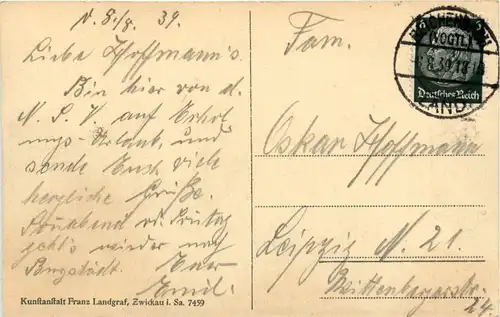 d. 8./8. 39.
Liebe Hoffmann's.
Bin hier von d.
N. S. V. auf Erhol
ungs-Urlaub, und
sende Euch viele
herzliche Grüße.
Sonnabend od. Freitag
geht's wieder nach
Burgstädt. Euer
Emil.
Kunstanstalt Franz Landgraf, Zwickau i. Sa. 7459
Fam.
Oskar Hoffmann
Leipzig N. 21.
Wittenbergerstr.
24.
Deutsches Reich
(VOGTL)
LAND